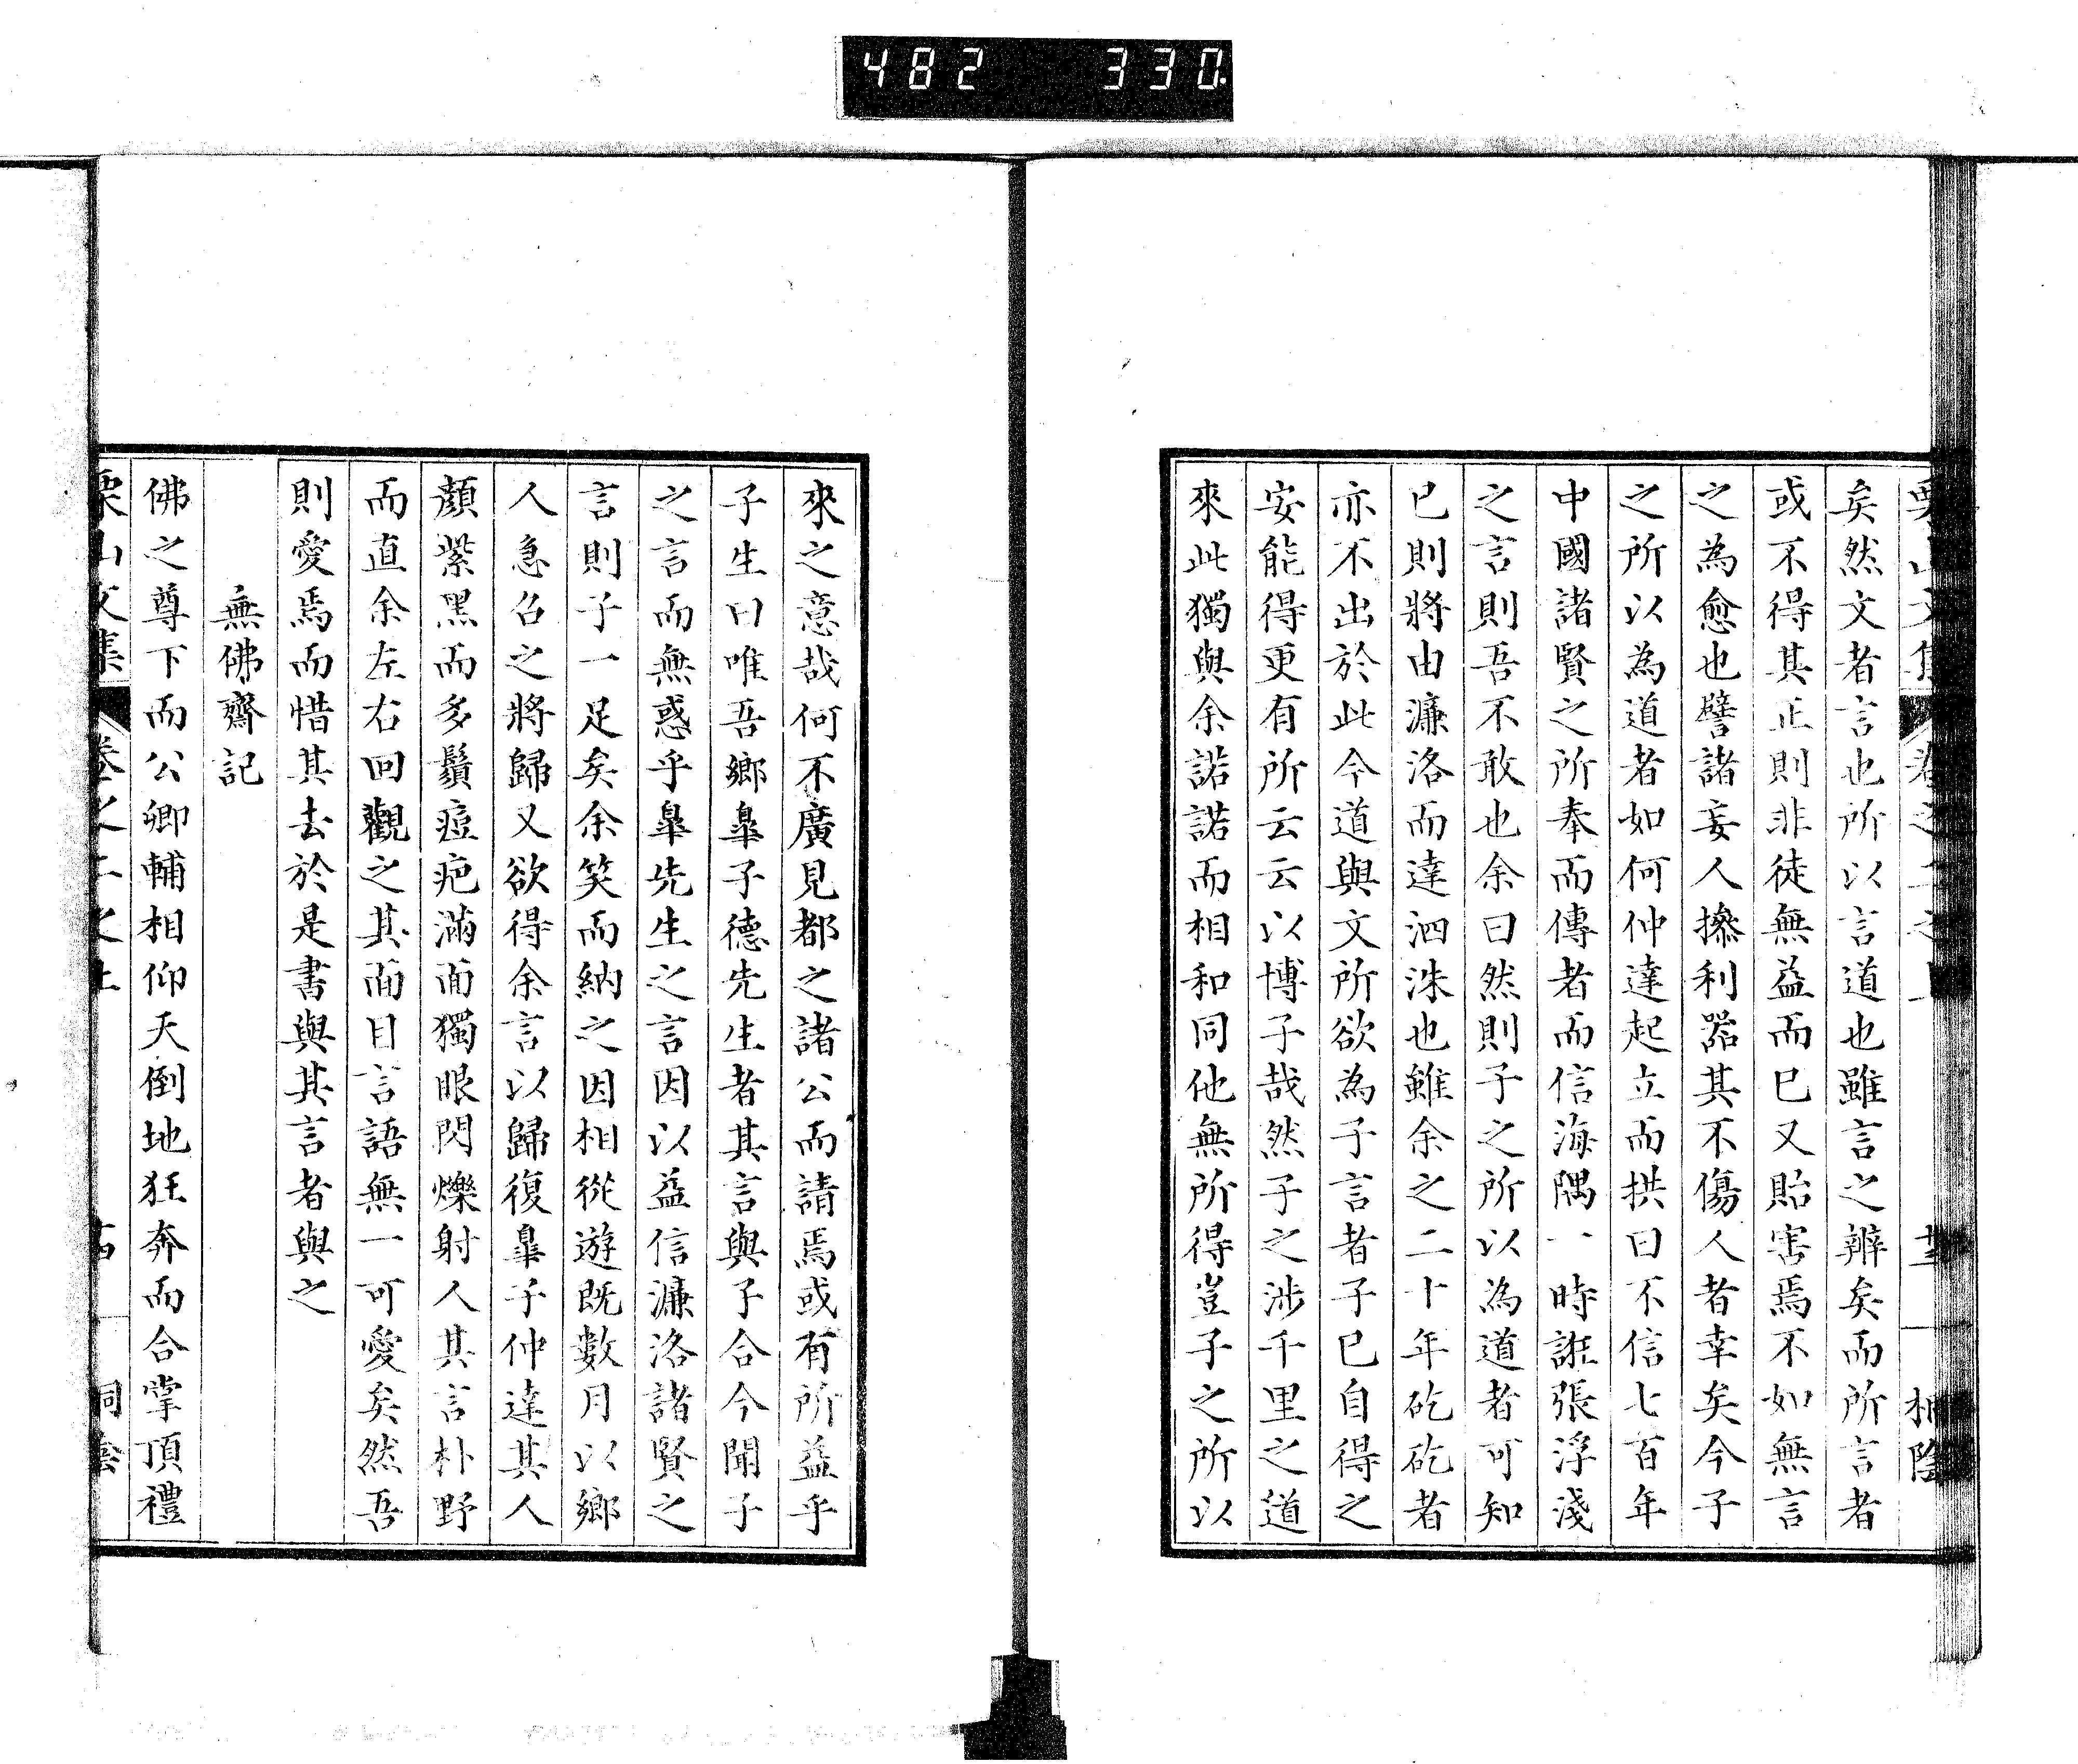 482 330
矣然文者言也所以言道也雖言之辨矣而所言者
或不得其正則非徒無益而已又貽害焉不如無言
之為愈也譬諸妄人摻利器其不傷人者幸矣今子
之所以為道者如何仲達起立而拱曰不信七百年
中國諸賢之所奉而傳者而信海隅一時誑張浮淺
之言則吾不敢也余曰然則子之所以為道者可知
已則將由濂洛而達泗洙也雖余之二十年矻矻者
亦不出於此今道與文所欲為子言者子已自得之
安能得更有所云云以博子哉然子之涉千里之道
來此獨與余諾諾而相和同他無所得豈子之所以
來之意哉何不廣見都之諸公而請焉或有所益乎
子生曰唯吾鄉皐子德先生者其言與子合今聞子
之言而無惑乎皐先生之言因以益信濂洛諸賢之
言則子一足矣余笑而納之因相從遊既數月以鄉
人急召之將歸又欲得余言以歸復皐子仲達其人
顏紫黑而多鬚痘疤滿面獨眼閃爍射人其言朴野
而直余左右回觀之其面目言語無一可愛矣然吾
則愛焉而惜其去於是書與其言者與之
無佛齋記
佛之尊下而公卿輔相仰天倒地狂奔而合掌頂禮
栗山文集